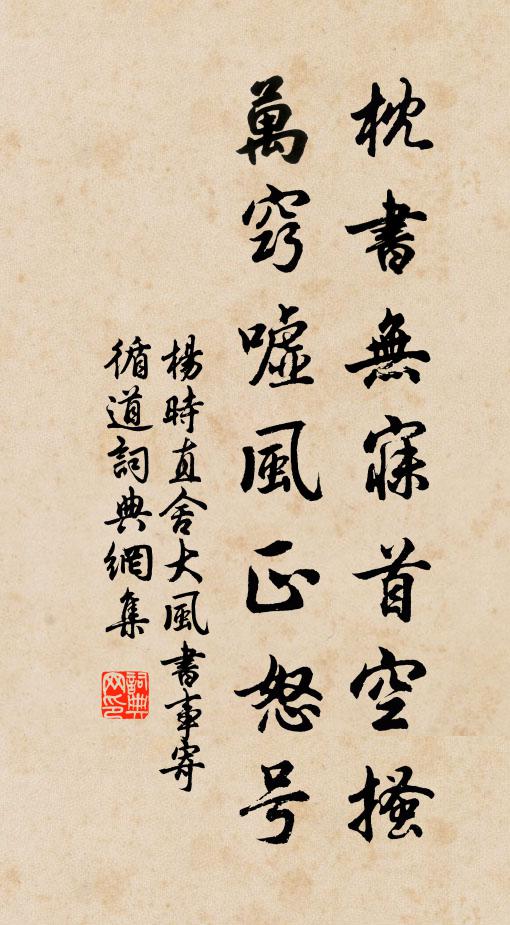 枕書無寐首空搔
萬窍嘘風正怒号
楊時直舍大風書事寄
循道詞典網集
詞典
网印